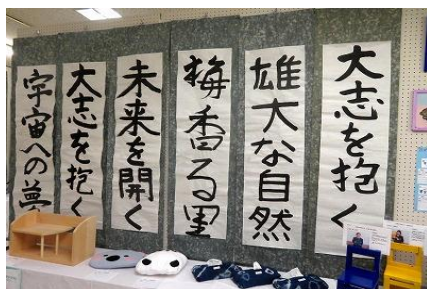 大志を抱く
雄大な自然
梅香る里
未来を開く
大志を抱く
宇宙への夢